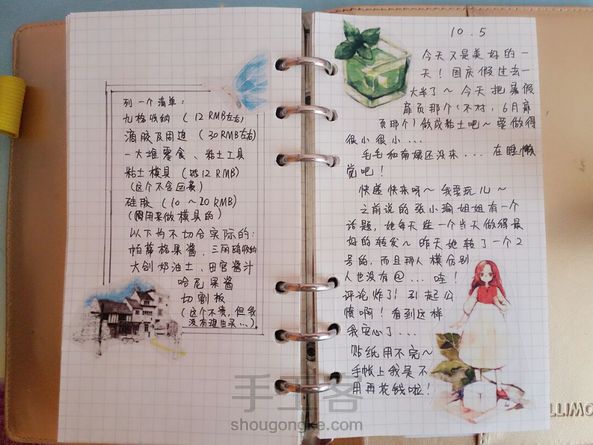 列一个清单:
九格收纳 (12RMB左右)
滴胶及周边 (30RMB左右)
一大堆零食、黏土工具
黏土模具 (12RMB)
(这个不含运费)
硅胶 (10～20RMB)
(用来做模具的)
以下为不切合实际的:
帕蒂格果酱、
大创奶油土、田宫酱汁
哈尼果酱
切割板
(这个不贵,但我
没有建目录...)
10.5
今天又是美好的一
天!国庆假过去一
大半了～今天把暑假
扉页那个(不对,6月扉
页那个)做成黏土吧～要做得
很小很小...
毛毛和南瓜还没来...在睡懒
觉吧!
快点快来呀～我要玩儿～
之前说的张小瑜姐姐有一个
话题,她每天选一个当天做得最
好的转发～昨天她转了一个2
号的,而且那人模仿别
人也没有@...哇!
评论炸了!引起公
愤啊!看到这样
我安心了...
贴纸用不完～
手帐上我是不
用再花钱啦!
LLIMO
手工客
shougongke.com